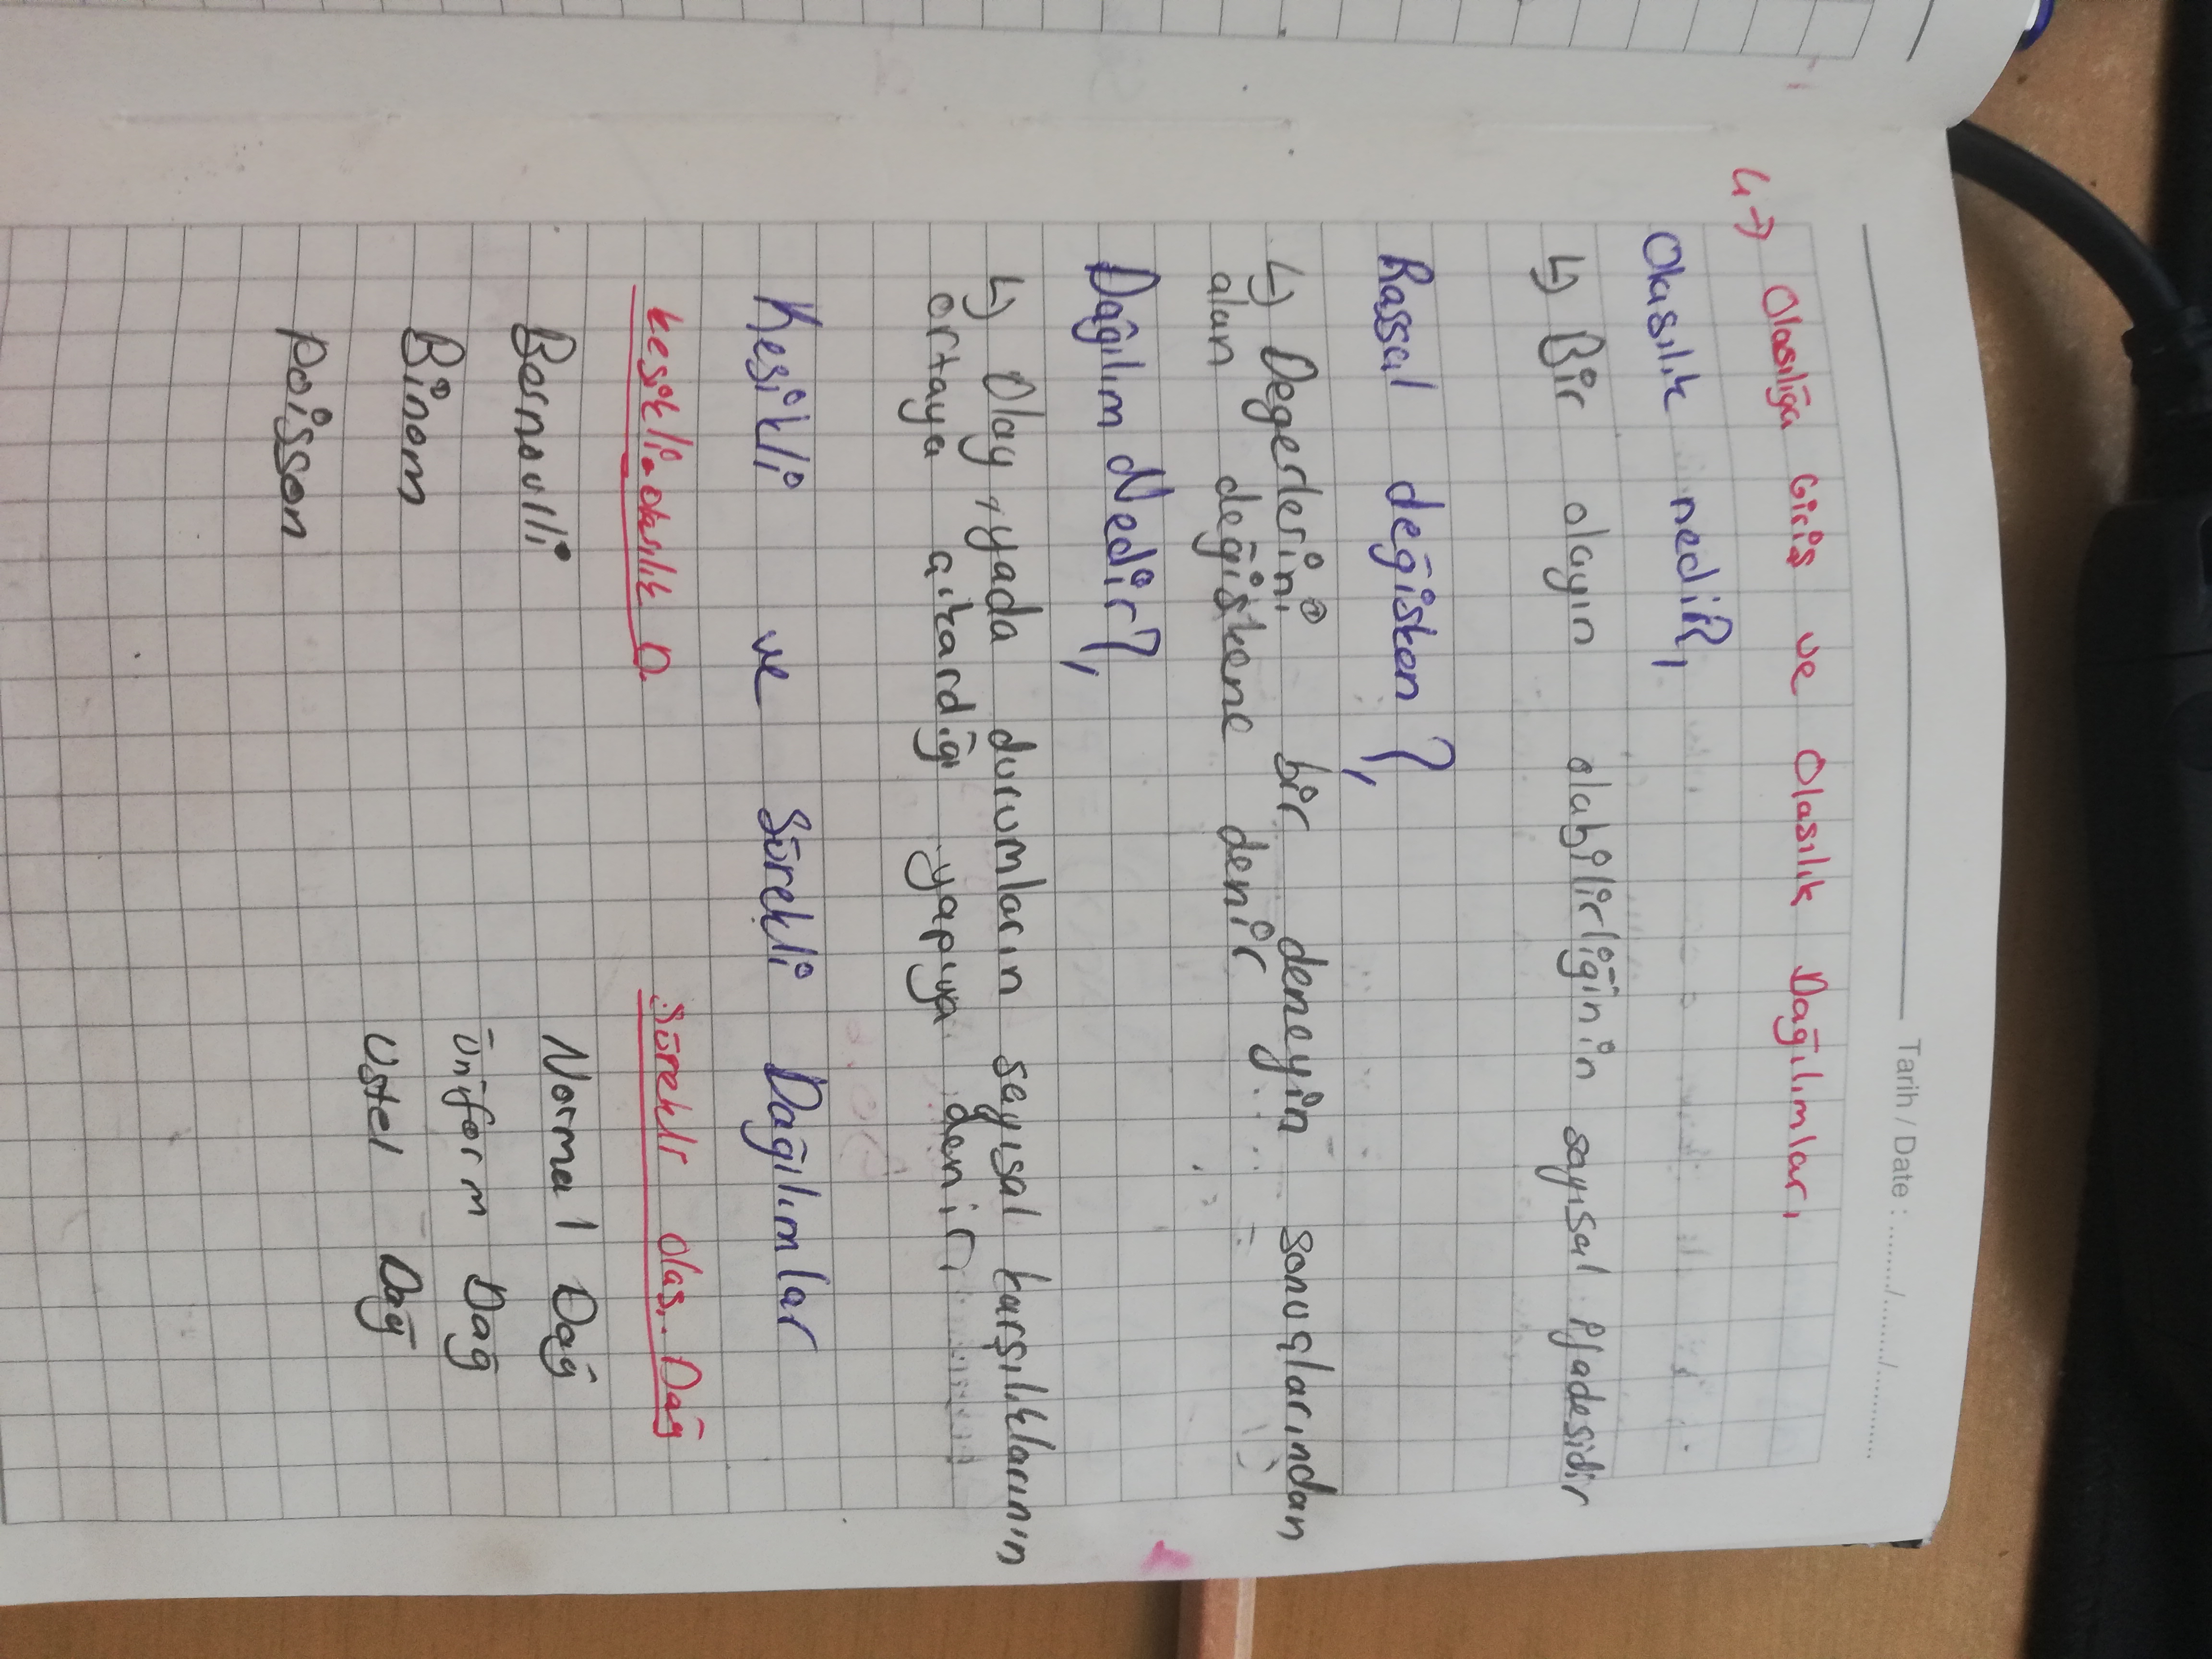 Tarih / Date : ......../......../............
↳→ Olasılığa Giriş ve Olasılık Dağılımları,
Olasılık nediR,
↳ Bir olayın olabilirliğinin sayısal ifadesidir
Rassal değisken ?,
↳ Degerlerini bir deneyin sonuçlarından
alan değişkene denir
Dağılım Nedir?,
↳ Olay, yada durumların sayısal karşılıklarının
ortaya çıkardığı yapıya denir.
Kesikli ve Sürekli Dağılımlar
kesikli olasılık D. Sürekli Olas. Dağ
Bernoulli Normal Dağ
Binom Üniform Dağ
Poisson Ustel Dağ